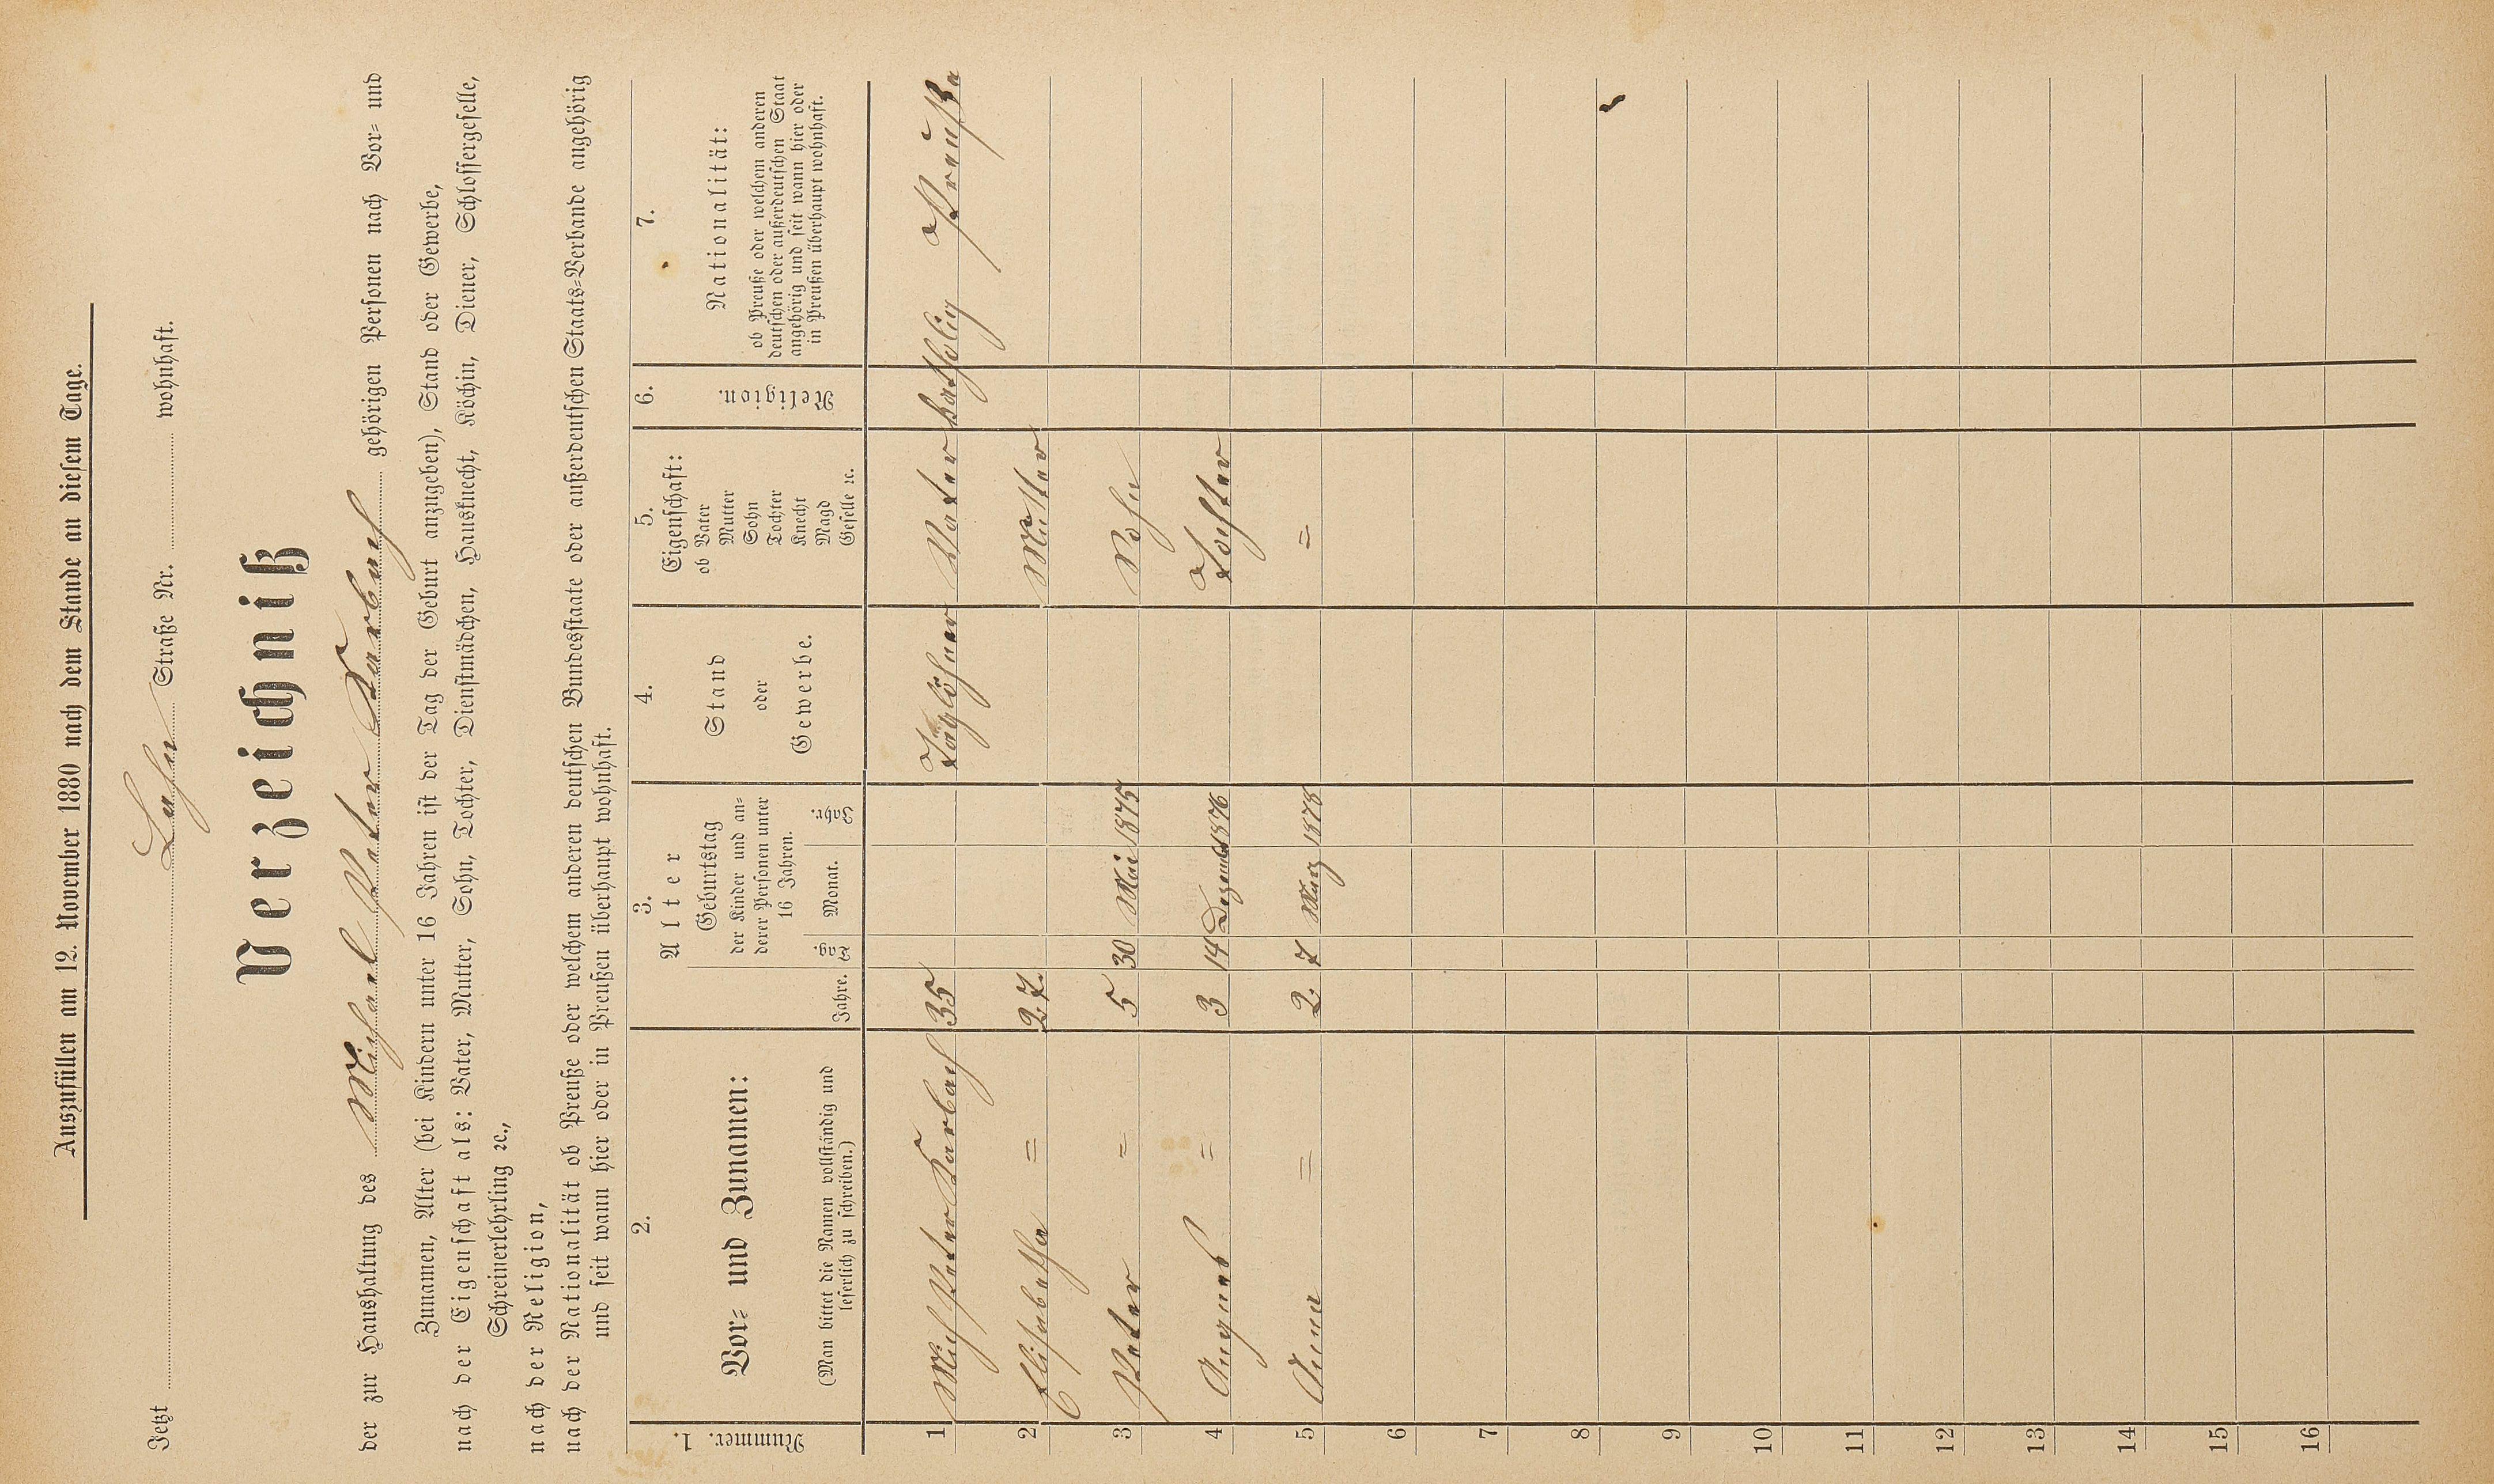 Auszufüllen am 12. November 1880 nach dem Stande an diesem Tage.
Jetzt Lahn Straße Nr. wohnhaft.
Verzeichniß
der zur Haushaltung des Michael Peter Karbach gehörigen Personen nach Vor- und
Zunamen, Alter (bei Kindern unter 16 Jahren ist der Tag der Geburt anzugeben), Stand oder Gewerbe,
nach der Eigenschaft als: Vater, Mutter, Sohn, Tochter, Dienstmädchen, Hausknecht, Köchin, Diener, Schlossergeselle,
Schreinerlehrling ꝛc.,
nach der Religion,
nach der Nationalität ob Preuße oder welchem anderen deutschen Bundesstaate oder außerdeutschen Staats-Verbande angehörig
und seit wann hier oder in Preußen überhaupt wohnhaft.
1. Nummer.
2. Vor- und Zunamen:
(Man bittet die Namen vollständig und
leserlich zu schreiben.)
3. Alter
Jahre.
Geburtstag
der Kinder und an-
derer Personen unter
16 Jahren.
Tag. Monat. Jahr.
4. Stand
oder
Gewerbe.
5. Eigenschaft:
ob Vater
Mutter
Sohn
Tochter
Knecht
Magd
Geselle ꝛc.
6. Religion.
7. Nationalität:
ob Preuße oder welchem anderen
deutschen oder außerdeutschen Staat
angehörig und seit wann hier oder
in Preußen überhaupt wohnhaft.
1 Mich Peter Karbach 35 Taglöhner Vater katholig Preuße
2 Elisabetha = 27. Mutter
3 Peter = 5 30 Mai 1875 Sohn
4 Angnes = 3 14 Dezemb 1876 Tochter
5 Anna = 2. 7 März 1878 =
6
7
8
9
10
11
12
13
14
15
16